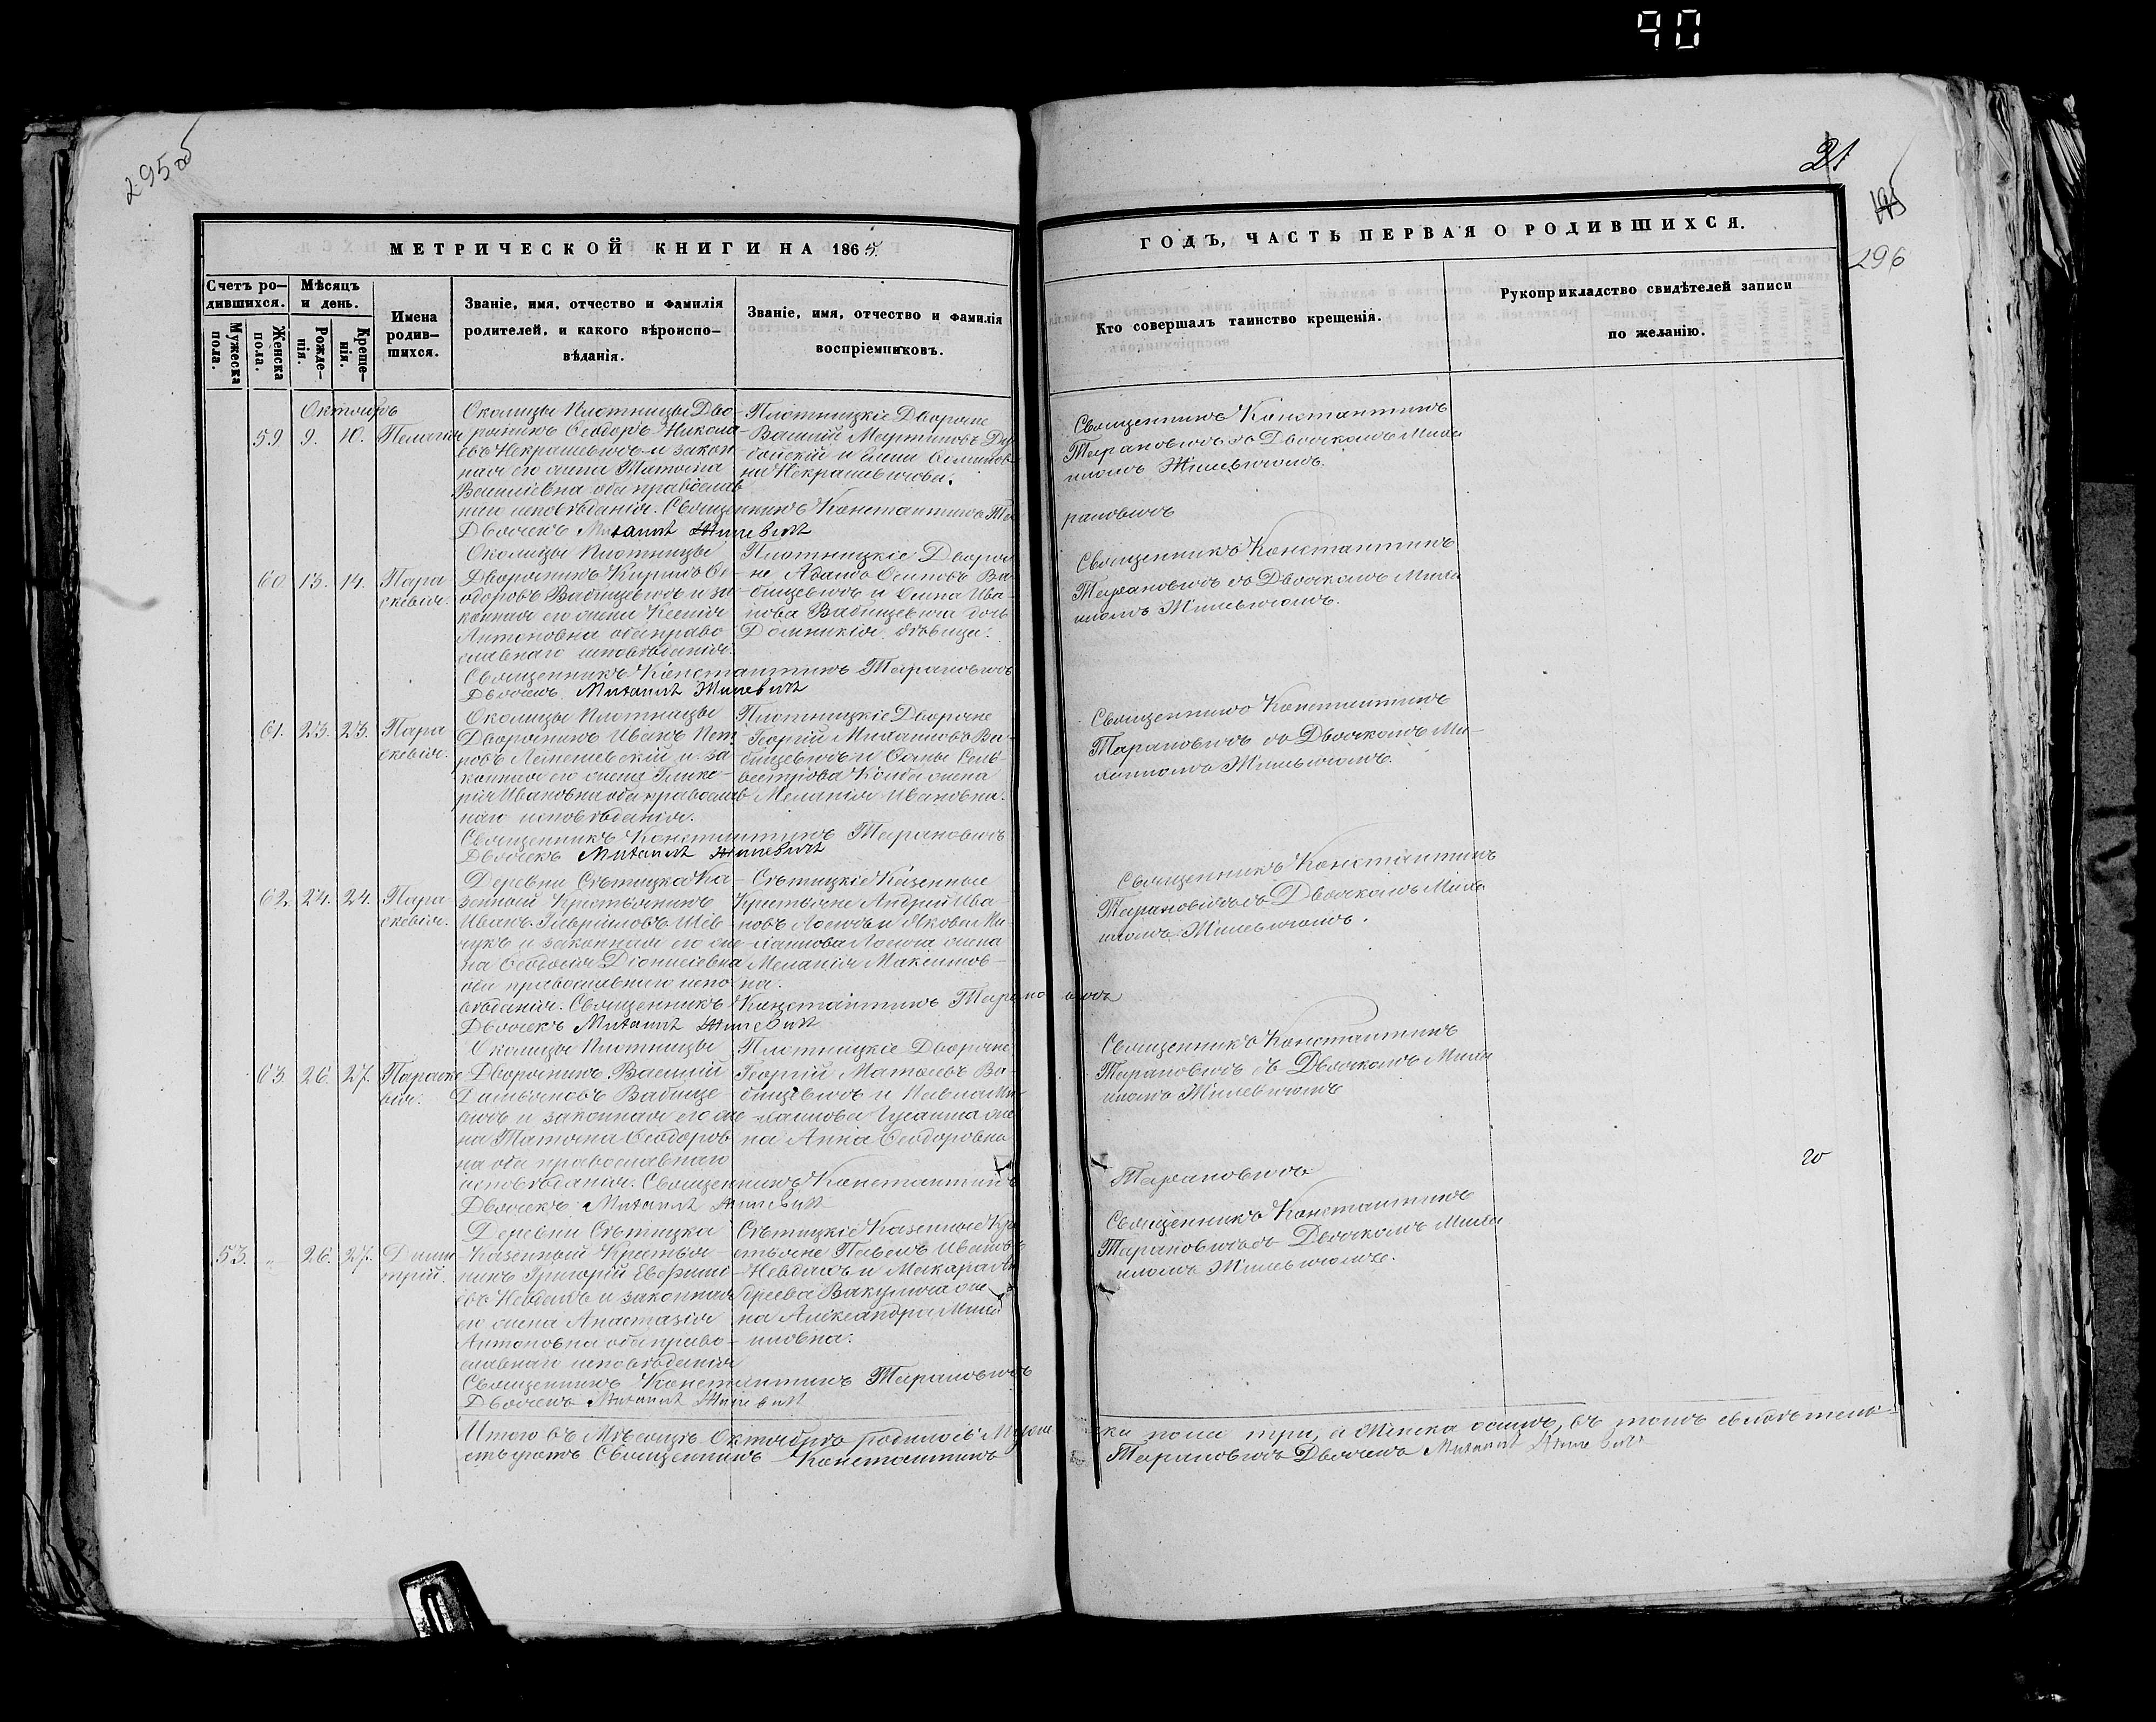 90
295об
21
195
296
МЕТРИЧЕСКОЙ КНИГИ НА 1865
ГОДЪ, ЧАСТЬ ПЕРВАЯ О РОДИВШИХСЯ.
Счетъ ро-
дившихся.
Мужеска
пола.
Женска
пола.
Мѣсяцъ
и день.
Рожде-
нія.
Креще-
нія.
Имена
родив-
шихся.
Званіе, имя, отчество и фамилія
родителей, и какого вѣроиспо-
вѣданія.
Званіе, имя, отчество и фамилія
воспріемниковъ.
Кто совершалъ таинство крещенія.
Рукоприкладство свидѣтелей записи
по желанію.
Октоябрь
59 9. 10. Пелагія
Околицы Плотницы Дво-
рянинъ Ѳеодоръ Никола-
евъ Некрашевичъ и закон
ная его жена Татьяна
Василіевна оба православ
наго исповѣданія. Священникъ Константинъ Та
рановичъ
Дьячекъ Михаилъ Жилевичъ
Плотницкіе Дворяне
Василій Мартиновъ
и
на Некрашевичова.
Священникъ Константинъ
Тарановичъ съ Дьячкомъ Миха
иломъ Жилевичомъ.
60 13. 14. Пара
скевія.
Околицы Плотницы
Дворянинъ Кирилъ Ѳе-
одоровъ Вабищевичъ и за-
конная его жена Ксенія
Антоновна оба право
славнаго исповѣданія.
Священникъ Константинъ Тарановичъ
Дьячекъ Михаилъ Жилевичъ
Плотницкіе Дворя
не Адамъ Осиповъ Ва-
бищевичъ и Анна Ива-
нова Вабищевича дочь
Домникія дѣвица.
Священникъ Константинъ
Тарановичъ съ Дьячкомъ Миха
иломъ Жилевичомъ.
61. 23. 23. Пара
скевія.
Околицы Плотницы
Дворянинъ Иванъ Пет
ровъ Лемешевскій и за-
конная его жена Глике-
рія Ивановна оба православ
наго исповѣданія.
Священникъ Константинъ Тарановичъ
Дьячекъ Михаилъ Жилевичъ
Плотницкіе Дворяне
Георгій Михаиловъ Ва-
бищевичъ и Ѳомы Силь-
вестрова жена
Меланія Ивановна.
Священникъ Константинъ
Тарановичъ съ Дьячкомъ Ми-
хаиломъ Жилевичомъ.
62. 24. 24. Пара
скевія.
Деревни Сѣтицка Ка-
зенный Крестьянинъ
Иванъ Гавриловъ Шев-
чукъ и законная его же
на Ѳеодосія Діонисіевна
оба православнаго испо-
вѣданія. Священникъ Константинъ Тарановичъ
Дьячекъ Михаилъ Жилевичъ
Сѣтицкіе Казенные
Крестьяне Андрей Ива-
новъ и Якова Ми-
хаилова жена
Меланія Максимов-
на.
Священникъ Константинъ
Тарановичъ съ Дьячкомъ Миха
иломъ Жилевичомъ.
63. 26. 27. Параске
вія.
Околицы Плотницы
Дворянинъ Василій
Дамьяновъ Вабище
вичъ и законная его же
на Татьяна Ѳеодоров
на оба православнаго
исповѣданія. Священникъ Константинъ
Тарановичъ
Дьячекъ Михаилъ Жилевичъ
Плотницкіе Дворяне
Георгій Матѳеевъ Ва-
бищевичъ и Павла Ми-
хаилова же
на Анна Ѳеодоровна
Священникъ Константинъ
Тарановичъ съ Дьячкомъ Миха
иломъ Жилевичомъ
20
53. „ 26. 27. Дими
трій.
Деревни Сѣтицка
Казенный Крестья-
нинъ Григорій Евфимі-
евъ Невдахъ и законная
его жена Анастасія
Антоновна оба право-
славнаго исповѣданія
Священникъ Константинъ Тарановичъ
Дьячекъ Михаилъ Жилевичъ
Сѣтицкіе Казенные Кре
стьяне Павелъ Ивановъ
Невдахъ и Макара Ан
дреева Вакулича же
на Александра Миха
иловна.
Священникъ Константинъ
Тарановичъ съ Дьячкомъ Миха
иломъ Жилевичомъ.
Итого въ Мѣсяцѣ Октоябрѣ родилось Мужеска пола три, а Женска осмь, въ томъ свидѣтель-
ствуютъ Священникъ Константинъ Тарановичъ Дьячекъ Михаилъ Жилевичъ